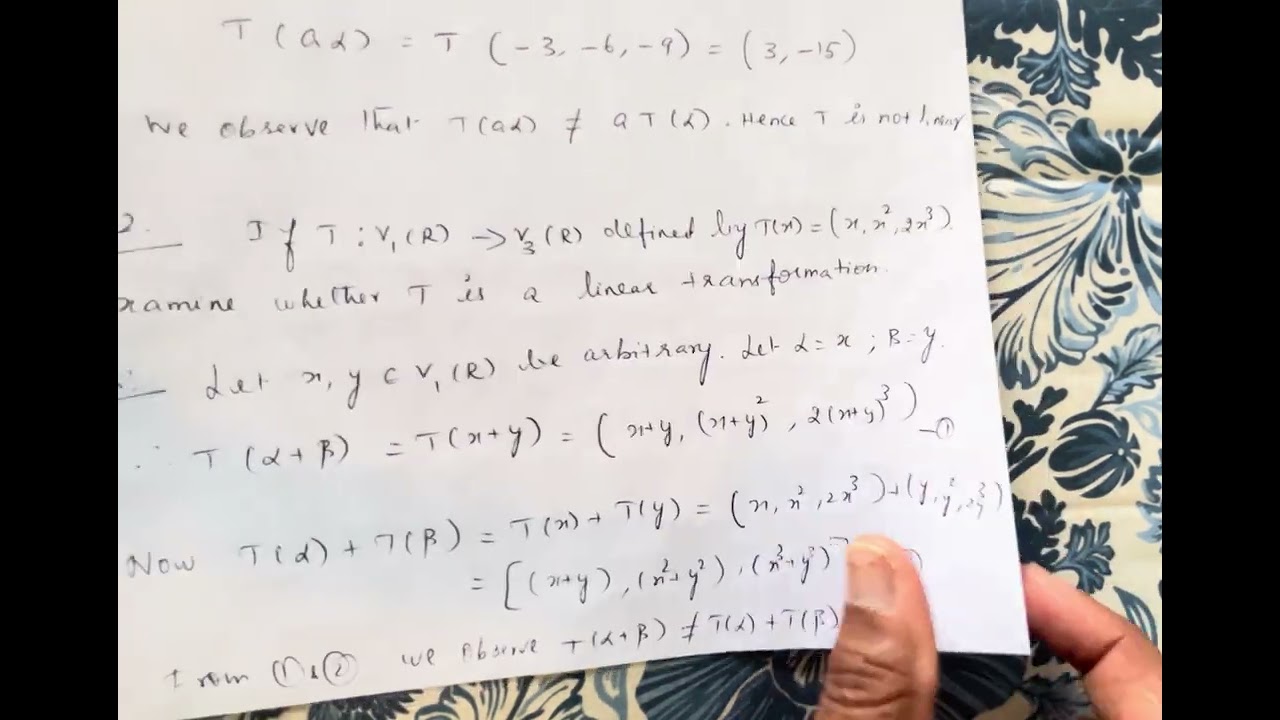 T (aα) = T (-3, -6, -9) = (3, -15)
We observe that T(aα) ≠ a T(α). Hence T is not linear
2. If T : V₁(R) → V₃(R) defined by T(x) = (x, x², 2x³).
xamine whether T is a linear transformation.
Let x, y ⊂ V₁(R) be arbitrary. Let α = x ; β = y.
∴ T (α + β) = T(x+y) = (x+y, (x+y)², 2(x+y)³) —①
Now T(α) + T(β) = T(x) + T(y) = (x, x², 2x³) + (y, y², 2y³)
= [(x+y), (x²+y²), (x³+y³)]
From ① & ② we observe T(α+β) ≠ T(α) + T(β)